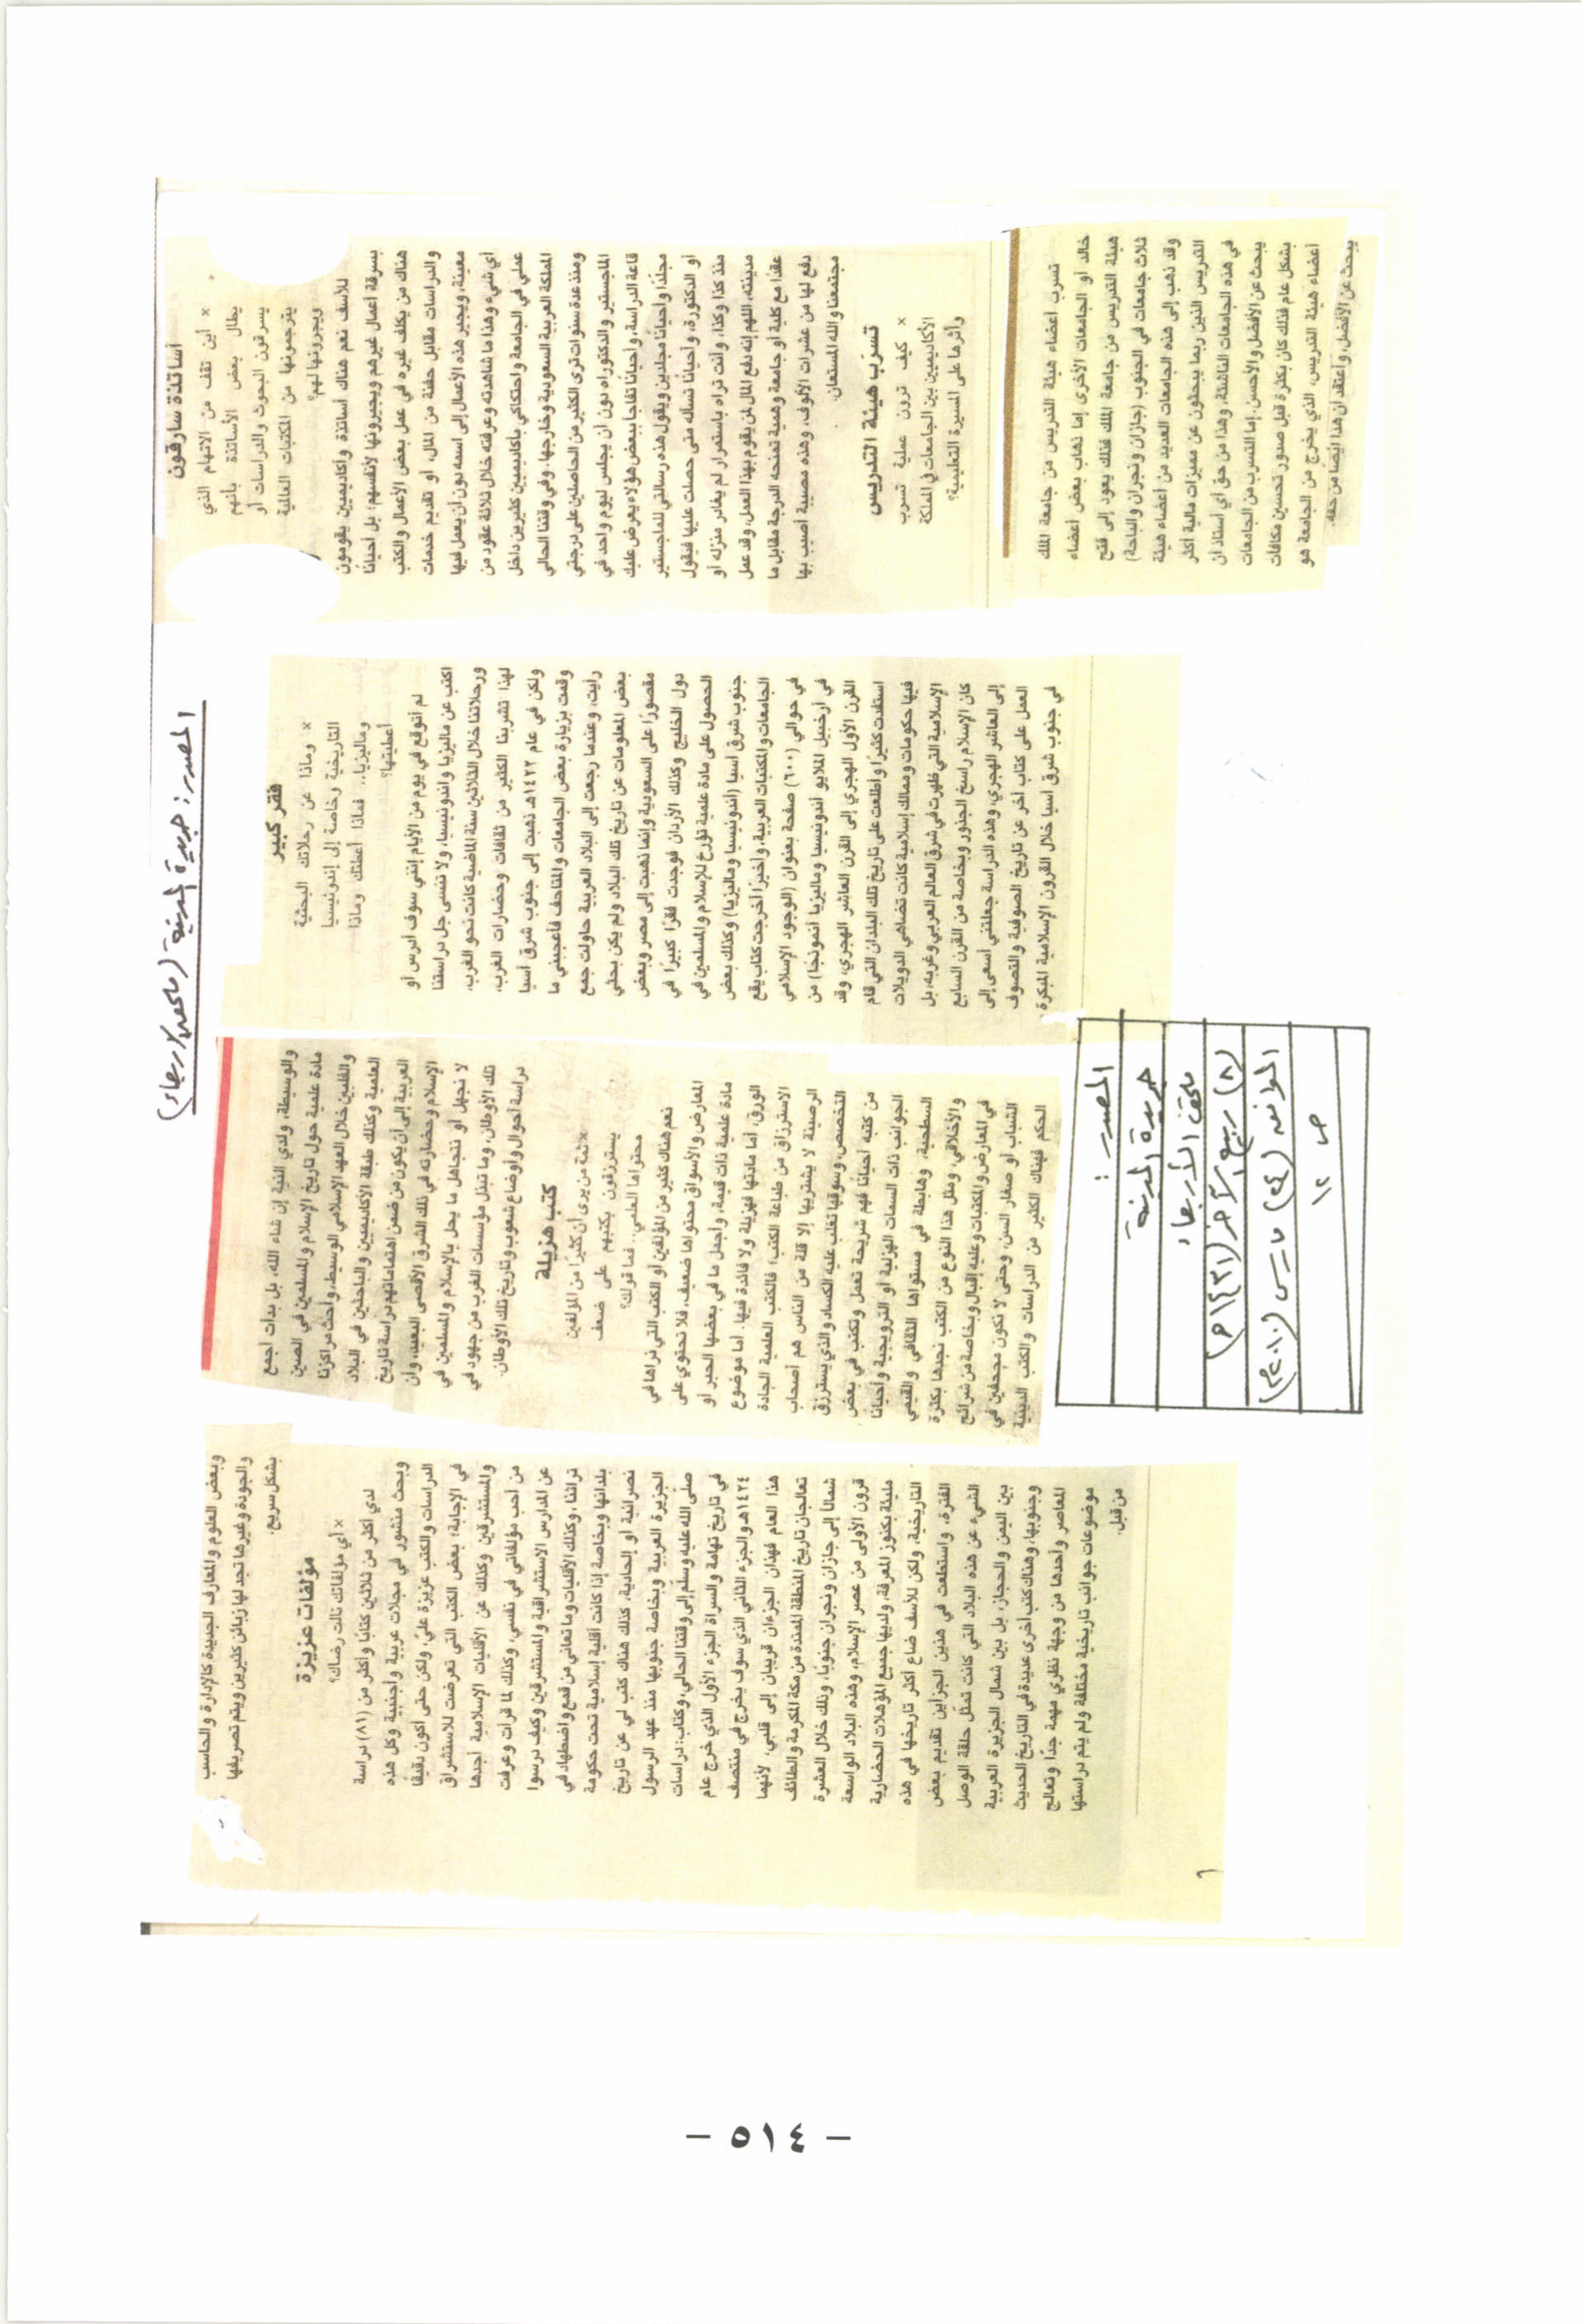 المصدر: جريدة المدينة (ملحق الأربعاء)
أساتذة سارقون
× أين تقف من الاتهام الذي
يطال بعض الأساتذة بأنهم
يسرقون البحوث والدراسات أو
يترجمونها من المكتبات العالمية
ويجيرونها لهم؟
للأسف نعم هناك أساتذة وأكاديميين يقومون
بسرقة أعمال غيرهم ويجيرونها لأنفسهم؛ بل أحيانًا
هناك من يكلف غيره في عمل بعض الأعمال والكتب
والدراسات مقابل حفنة من المال، أو تقديم خدمات
معينة، ويجير هذه الأعمال إلى اسمه دون أن يعمل فيها
أي شيء وهذا ما شاهدته وعرفته خلال ثلاثة عقود من
عملي في الجامعة واحتكاكي بأكاديميين كثيرين داخل
المملكة العربية السعودية وخارجها. وفي وقتنا الحالي
ومنذ عدة سنوات ترى الكثير من الحاصلين على درجتي
الماجستير والدكتوراه دون أن يجلس ليوم واحد في
قاعة الدراسة، وأحيانًا تفاجأ ببعض هؤلاء يعرض عليك
مجلدًا وأحيانًا مجلدين ويقول هذه رسالتي للماجستير
أو الدكتورة، وأحيانًا تسأله متى حصلت عليها فيقول
منذ كذا وكذا، وأنت تراه باستمرار لم يغادر منزله أو
مدينته، اللهم إنه دفع المال لمن يقوم بهذا العمل، وقد عمل
عقدًا مع كلية أو جامعة وهمية تمنحه الدرجة مقابل ما
دفع لها من عشرات الألوف، وهذه مصيبة أصيب بها
مجتمعنا والله المستعان.
تسرّب هيئة التدريس
× كيف ترون عملية تسرب
الأكاديميين بين الجامعات في المملكة
وأثرها على المسيرة التعليمية؟
تسرب أعضاء هيئة التدريس من جامعة الملك
خالد أو الجامعات الأخرى إما ذهاب بعض أعضاء
هيئة التدريس من جامعة الملك فذلك يعود إلى فتح
ثلاث جامعات في الجنوب (جازان ونجران والباحة)
وقد ذهب إلى هذه الجامعات العديد من أعضاء هيئة
التدريس الذين ربما يبحثون عن مميزات مالية أكثر
في هذه الجامعات الناشئة، وهذا من حق أي أستاذ أن
يبحث عن الأفضل والأحسن. إما التسرب من الجامعات
بشكل عام فذلك كان بكثرة قبل صدور تحسين مكافآت
أعضاء هيئة التدريس، الذي يخرج من الجامعة هو
يبحث عن الأفضل، وأعتقد أن هذا أيضًا من حقه.
فقر كبير
× وماذا عن رحلاتك البحثية
التاريخية وخاصة إلى إندونيسيا
وماليزيا.. فماذا أعطتك وماذا
أعطيتها؟
لم أتوقع في يوم من الأيام إنني سوف أدرس أو
اكتب عن ماليزيا واندونيسيا، ولا ننسى جل دراستنا
ورحلاتنا خلال الثلاثين سنة الماضية كانت نحو الغرب،
لهذا تشربنا الكثير من ثقافات وحضارات الغرب،
ولكن في عام ١٤٢٢هـ ذهبت إلى جنوب شرق آسيا
وقمت بزيارة بعض الجامعات والمتاحف فأعجبني ما
رأيت، وعندما رجعت إلى البلاد العربية حاولت جمع
بعض المعلومات عن تاريخ تلك البلاد ولم يكن بحثي
مقصورًا على السعودية وإنما ذهبت إلى مصر وبعض
دول الخليج وكذلك الأردان فوجدت فقرًا كبيرًا في
الحصول على مادة علمية تؤرخ للإسلام والمسلمين في
جنوب شرق آسيا (أندونيسيا وماليزيا) وكذلك بعض
الجامعات والمكتبات العربية، وأخيرًا أخرجت كتاب يقع
في حوالي (٦٠٠) صفحة بعنوان (الوجود الإسلامي
في أرخبيل الملايو أندونيسيا وماليزيا أنموذجًا) من
القرن الأول الهجري إلى القرن العاشر الهجري، وقد
استفدت كثيرًا وأطلعت على تاريخ تلك البلدان التي قام
فيها حكومات وممالك إسلامية كانت تضاهي الدويلات
الإسلامية التي ظهرت في شرق العالم العربي وغربه، بل
كان الإسلام راسخ الجذور وبخاصة من القرن السابع
إلى العاشر الهجري، وهذه الدراسة جعلتني أسعى إلى
العمل على كتاب آخر عن تاريخ الصوفية والتصوف
في جنوب شرق آسيا خلال القرون الإسلامية المبكرة
والوسيطة، ولدي النية إن شاء الله، بل بدأت أجمع
مادة علمية حول تاريخ الإسلام والمسلمين في الصين
والفلبين خلال العهد الإسلامي الوسيط، وأحث مراكزنا
العلمية وكذلك طبقة الأكاديميين والباحثين في البلاد
العربية إلى أن يكون من ضمن اهتماماتهم دراسة تاريخ
الإسلام وحضارته في ذلك الشرق الأقصى البعيد، وأن
لا نجهل أو نتجاهل ما يحل بالإسلام والمسلمين في
تلك الأوطان، وما تبذل مؤسسات الغرب من جهود في
دراسة أحوال وأوضاع شعوب وتاريخ تلك الأوطان.
كتب هزيلة
× ثمة من يرى أن كثيرًا من المؤلفين
يسترزقون بكتبهم على ضعف
محتواها العلمي.. فما قولك؟
نعم هناك كثير من المؤلفين أو الكتب التي تراها في
المعارض والأسواق محتواها ضعيف، فلا تحتوي على
مادة علمية ذات قيمة، وأجمل ما في بعضها الحبر أو
الورق، أما مادتها فهزيلة ولا فائدة فيها. أما موضوع
الاسترزاق من طباعة الكتب؛ فالكتب العلمية الجادة
الرصينة لا يشتريها إلا قلة من الناس هم أصحاب
التخصص، وسوقها تغلب عليه الكساد والذي يسترزق
من كتبه أحيانًا فهم شريحة تعمل وتكتب في بعض
الجوانب ذات السمات الهزلية أو الترويجية وأحيانًا
السطحية، وهابطة في مستواها الثقافي والقيمي
والأخلاقي، ومثل هذا النوع من الكتب نجدها بكثرة
في المعارض والمكتبات وعليه إقبال وبخاصة من شرائح
الشباب أو صغار السن، وحتى لا نكون مجحفين في
الحكم فهناك الكثير من الدراسات والكتب الدينية
وبعض العلوم والمعارف الجديدة كالإدارة والحاسب
والجودة وغيرها تجد لها زبائن كثيرين ويتم تصريفها
بشكل سريع.
مؤلفات عزيزة
× أي مؤلفاتك نالت رضاك؟
لدي أكثر من ثلاثين كتابًا وأكثر من (٨١) دراسة
وبحث منشور في مجلات عربية وأجنبية وكل هذه
الدراسات والكتب عزيزة عليّ، ولكن حتى أكون دقيقًا
في الإجابة؛ بعض الكتب التي تعرضت للاستشراق
والمستشرقين وكذلك عن الأقليات الإسلامية أجدها
من أحب مؤلفاتي في نفسي، وكذلك لما قرأت وعرفت
عن المدارس الاستشراقية والمستشرقين وكيف درسوا
تراثنا، وكذلك الأقليات وما تعاني من قمع واضطهاد في
بلدانها وبخاصة إذا كانت أقلية إسلامية تحت حكومة
نصرانية أو إلحادية، كذلك هناك كتب لي عن تاريخ
الجزيرة العربية وبخاصة جنوبها منذ عهد الرسول
صلّى الله عليه وسلّم إلى وقتنا الحالي، وكتاب: دراسات
في تاريخ تهامة والسراة الجزء الأول الذي خرج عام
١٤٢٤هـ والجزء الثاني الذي سوف يخرج في منتصف
هذا العام فهذان الجزءان قريبان إلى قلبي، لأنهما
تعالجان تاريخ المنطقة الممتدة من مكة المكرمة والطائف
شمالاً إلى جازان ونجران جنوبًا، وذلك خلال العشرة
قرون الأولى من عصر الإسلام، وهذه البلاد الواسعة
مليئة بكنوز المعرفة، ولديها جميع المؤهلات الحضارية
التاريخية، ولكن للأسف ضاع أكثر تاريخها في هذه
الفترة، واستطعت في هذين الجزأين تقديم بعض
الشيء عن هذه البلاد التي كانت تمثل حلقة الوصل
بين اليمن والحجاز، بل بين شمال الجزيرة العربية
وجنوبها، وهناك كتب أخرى عديدة في التاريخ الحديث
المعاصر وأحدها من وجهة نظري مهمة جدًا وتعالج
موضوعات جوانب تاريخية مختلفة ولم يتم دراستها
من قبل.
المصدر:
جريدة المدينة
ملحق الأربعاء
(٨) ربيع الآخر (١٤٣١هـ)
الموافق (٢٤) مارس (٢٠١٠م)
ص ١٢
- ٥١٤ -